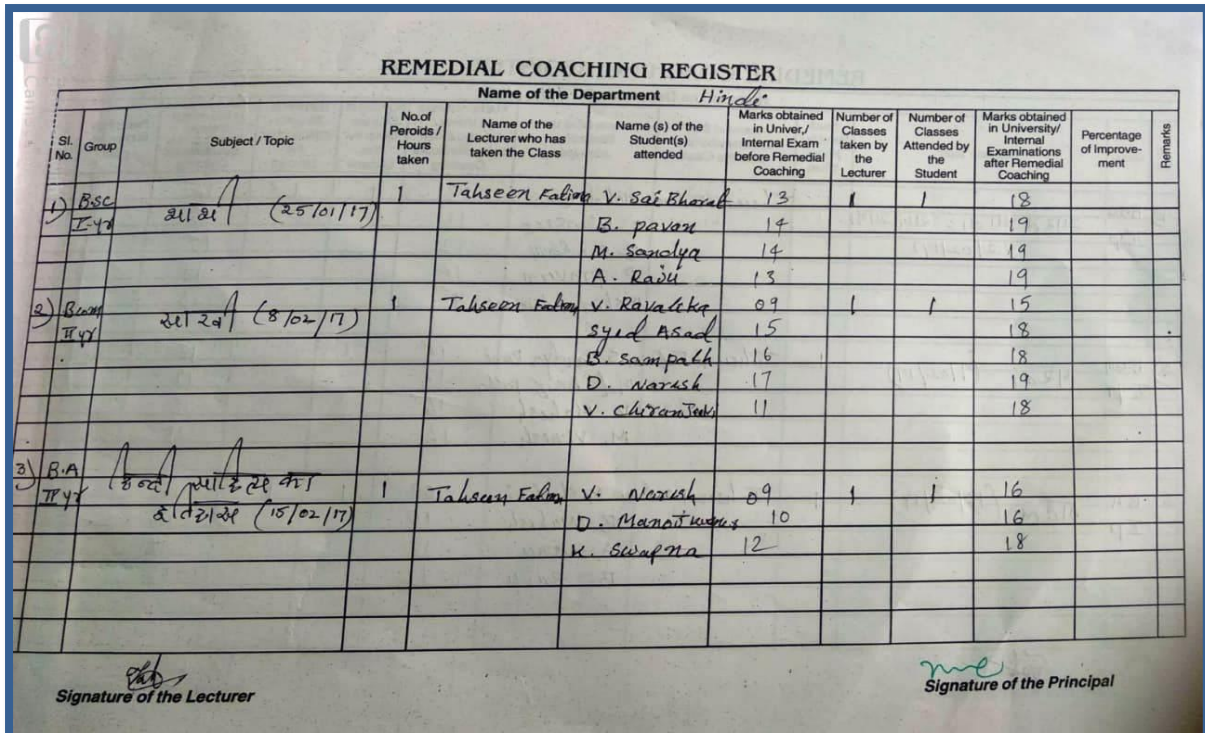 REMEDIAL COACHING REGISTER
Name of the Department Hindi
Sl. No. Group Subject / Topic No.of Peroids / Hours taken Name of the Lecturer who has taken the Class Name (s) of the Student(s) attended Marks obtained in Univer,/ Internal Exam before Remedial Coaching Number of Classes taken by the Lecturer Number of Classes Attended by the Student Marks obtained in University/ Internal Examinations after Remedial Coaching Percentage of Improve- ment Remarks
1) B.sc 1 Tahseen Fatima V. Sai Bharat 13 1 1 18
I-yr (25/01/17) B. pavan 14 19
M. Sandya 14 19
A. Raju 13 19
2) B.com 1 Tahseen Fatima V. Ravalika 09 1 1 15
II yr (8/02/17) Syed Asad 15 18
B. Sampath 16 18
D. Naresh 17 19
V. Chiranjeevi 11 18
3) B.A हिन्दी साहित्य का
II yr 1 Tahseen Fatima V. Naresh 09 1 1 16
इतिहास (15/02/17) D. Manoj kumar 10 16
K. Swapna 12 18
Signature of the Lecturer
Signature of the Principal